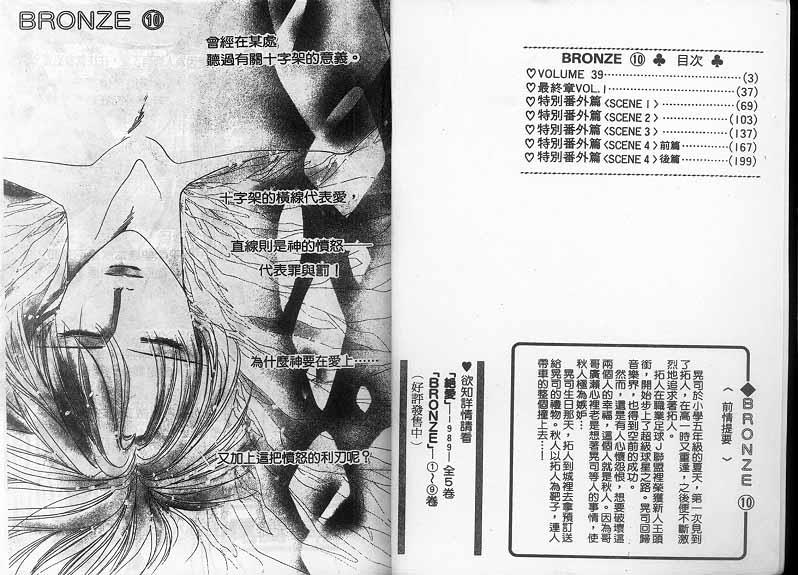 BRONZE ⑩
曾經在某處
聽過有關十字架的意義。
十字架的橫線代表愛，
直線則是神的憤怒——
代表罪與罰！
為什麼神要在愛上……
又加上這把憤怒的利刃呢？
BRONZE ⑩ ♣ 目次 ♣
♡VOLUME 39……(3)
♡最終章VOL.1……(37)
♡特別番外篇〈SCENE 1〉……(69)
♡特別番外篇〈SCENE 2〉……(103)
♡特別番外篇〈SCENE 3〉……(137)
♡特別番外篇〈SCENE 4〉前篇……(167)
♡特別番外篇〈SCENE 4〉後篇……(199)
◆BRONZE ⑩
〈前情提要〉
晃司於小學五年級的夏天，第一次見到
了拓人，在高一時又重逢，之後便不斷激
烈地追求著拓人。
拓人在職業足球J聯盟裡榮獲新人王頭
銜，開始步上了超級球星之路。晃司回歸
音樂界，也得到空前的成功。
然而，還是有人心懷怨恨，想要破壞這
兩個人的幸福，這個人就是秋人。因為哥
哥廣瀨心裡老是想著晃司等人的事情，使
秋人極為嫉妒…
晃司生日那天，拓人到城裡去拿預訂送
給晃司的禮物。秋人以拓人為靶子，連人
帶車的整個撞上去……
♥欲知詳情請看
「絕愛」—1989—全5卷
「BRONZE」—①～⑨卷
（好評發售中）